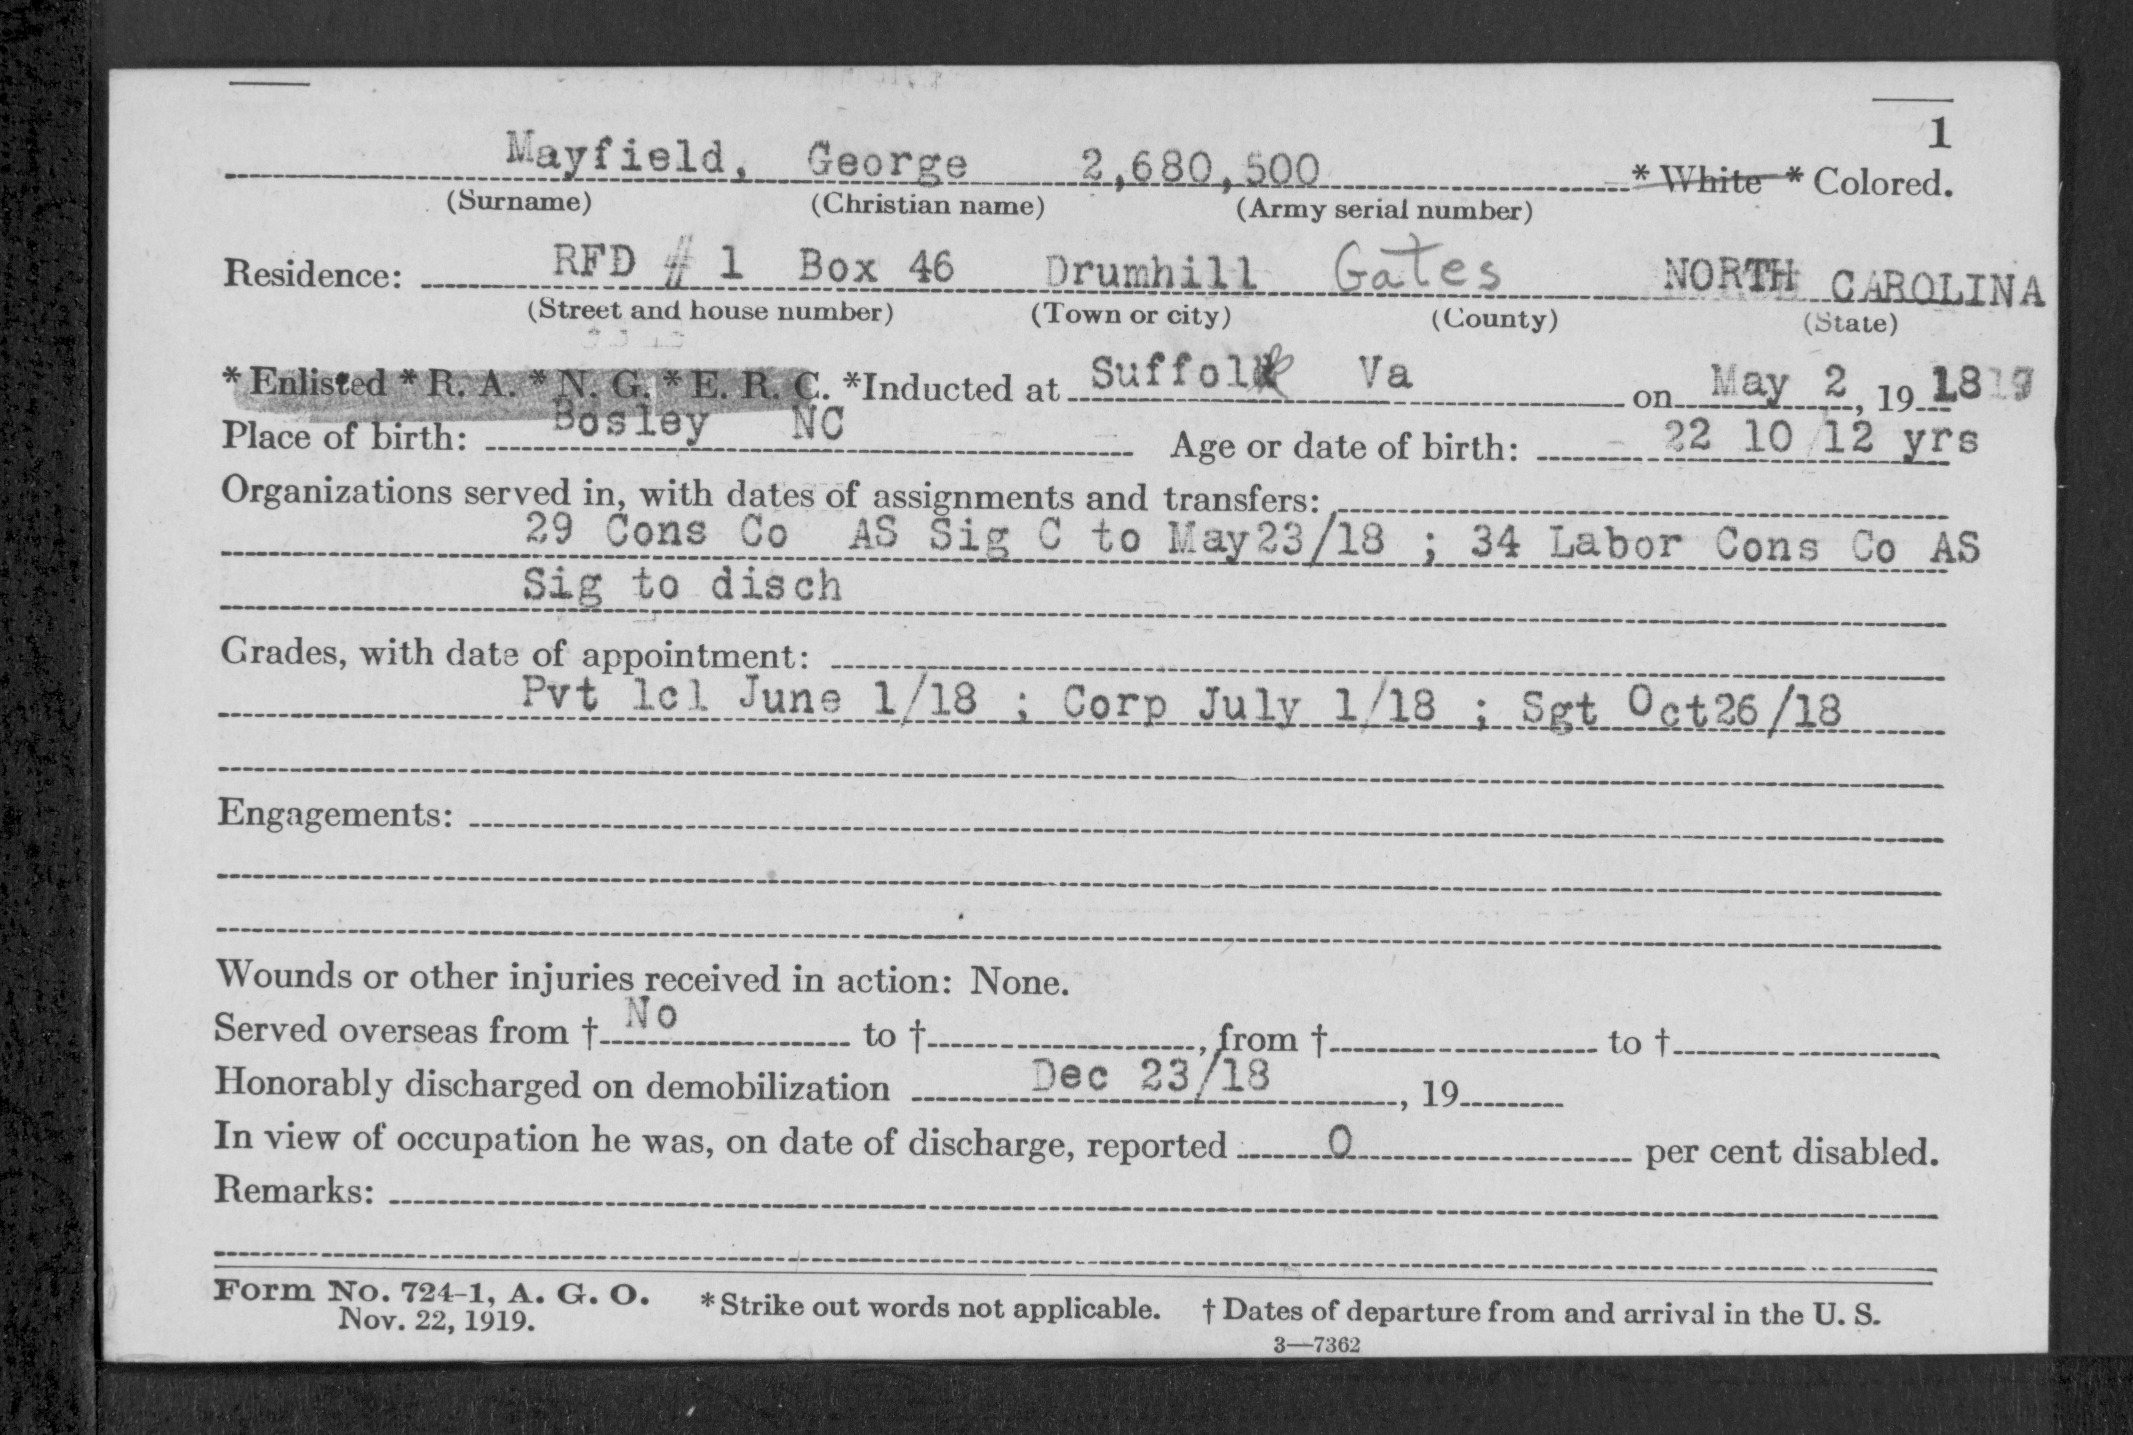 1
Mayfield, George 2,680,500 * White * Colored.
(Surname) (Christian name) (Army serial number)
Residence: RFD # 1 Box 46 Drumhill Gates NORTH CAROLINA
(Street and house number) (Town or city) (County) (State)
* Enlisted * R. A. * N. G. * E. R. C. *Inducted at Suffolk Va on May 2, 19 18 19
Place of birth: Bosley NC Age or date of birth: 22 10/12 yrs
Organizations served in, with dates of assignments and transfers:
29 Cons Co AS Sig C to May23/18 ; 34 Labor Cons Co AS
Sig to disch
Grades, with date of appointment:
Pvt 1cl June 1/18 ; Corp July 1/18 ; Sgt Oct26/18
Engagements:
Wounds or other injuries received in action: None.
Served overseas from † No to †, from † to †
Honorably discharged on demobilization Dec 23/18, 19
In view of occupation he was, on date of discharge, reported 0 per cent disabled.
Remarks:
Form No. 724-1, A. G. O. * Strike out words not applicable. † Dates of departure from and arrival in the U. S.
Nov. 22, 1919.
3—7362